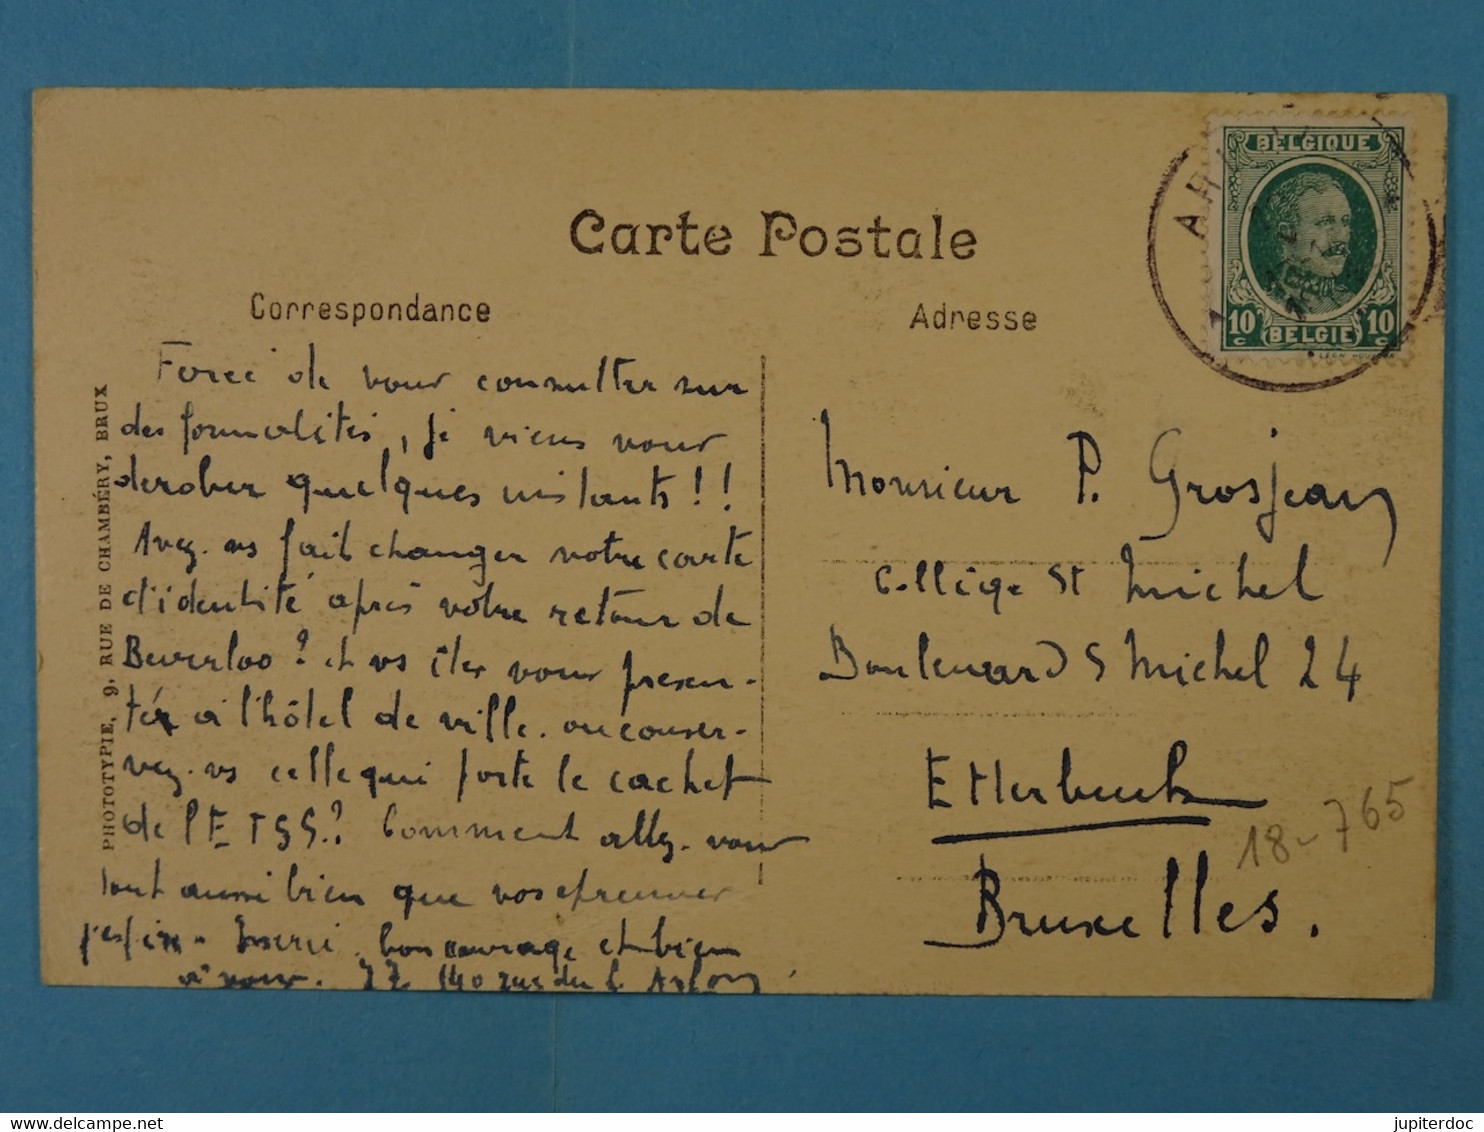 Carte Postale
Correspondance
Adresse
BELGIQUE
10c 10c
BELGIE
PHOTOTYPIE, 9, RUE DE CHAMBÉRY, BRUX
Forcé de vous consulter sur
des formalités, je viens vous
dérober quelques instants!!
Avez-vs fait changer votre carte
d'identité après votre retour de
Beverloo? et vs êtes vous présen-
ter à l'hôtel de ville. ou conser-
vez-vs celle qui porte le cachet
de l'ETSS? Comment allez-vous
tout aussi bien que vos épreuves
j'espère. bon courage et bien
à vous. 140 rue de Arlon
Monsieur P. Grosjean
Collège St Michel
Boulevard S Michel 24
Etterbeek
Bruxelles.
18-765
https://www.delcampe.net
jupiterdoc